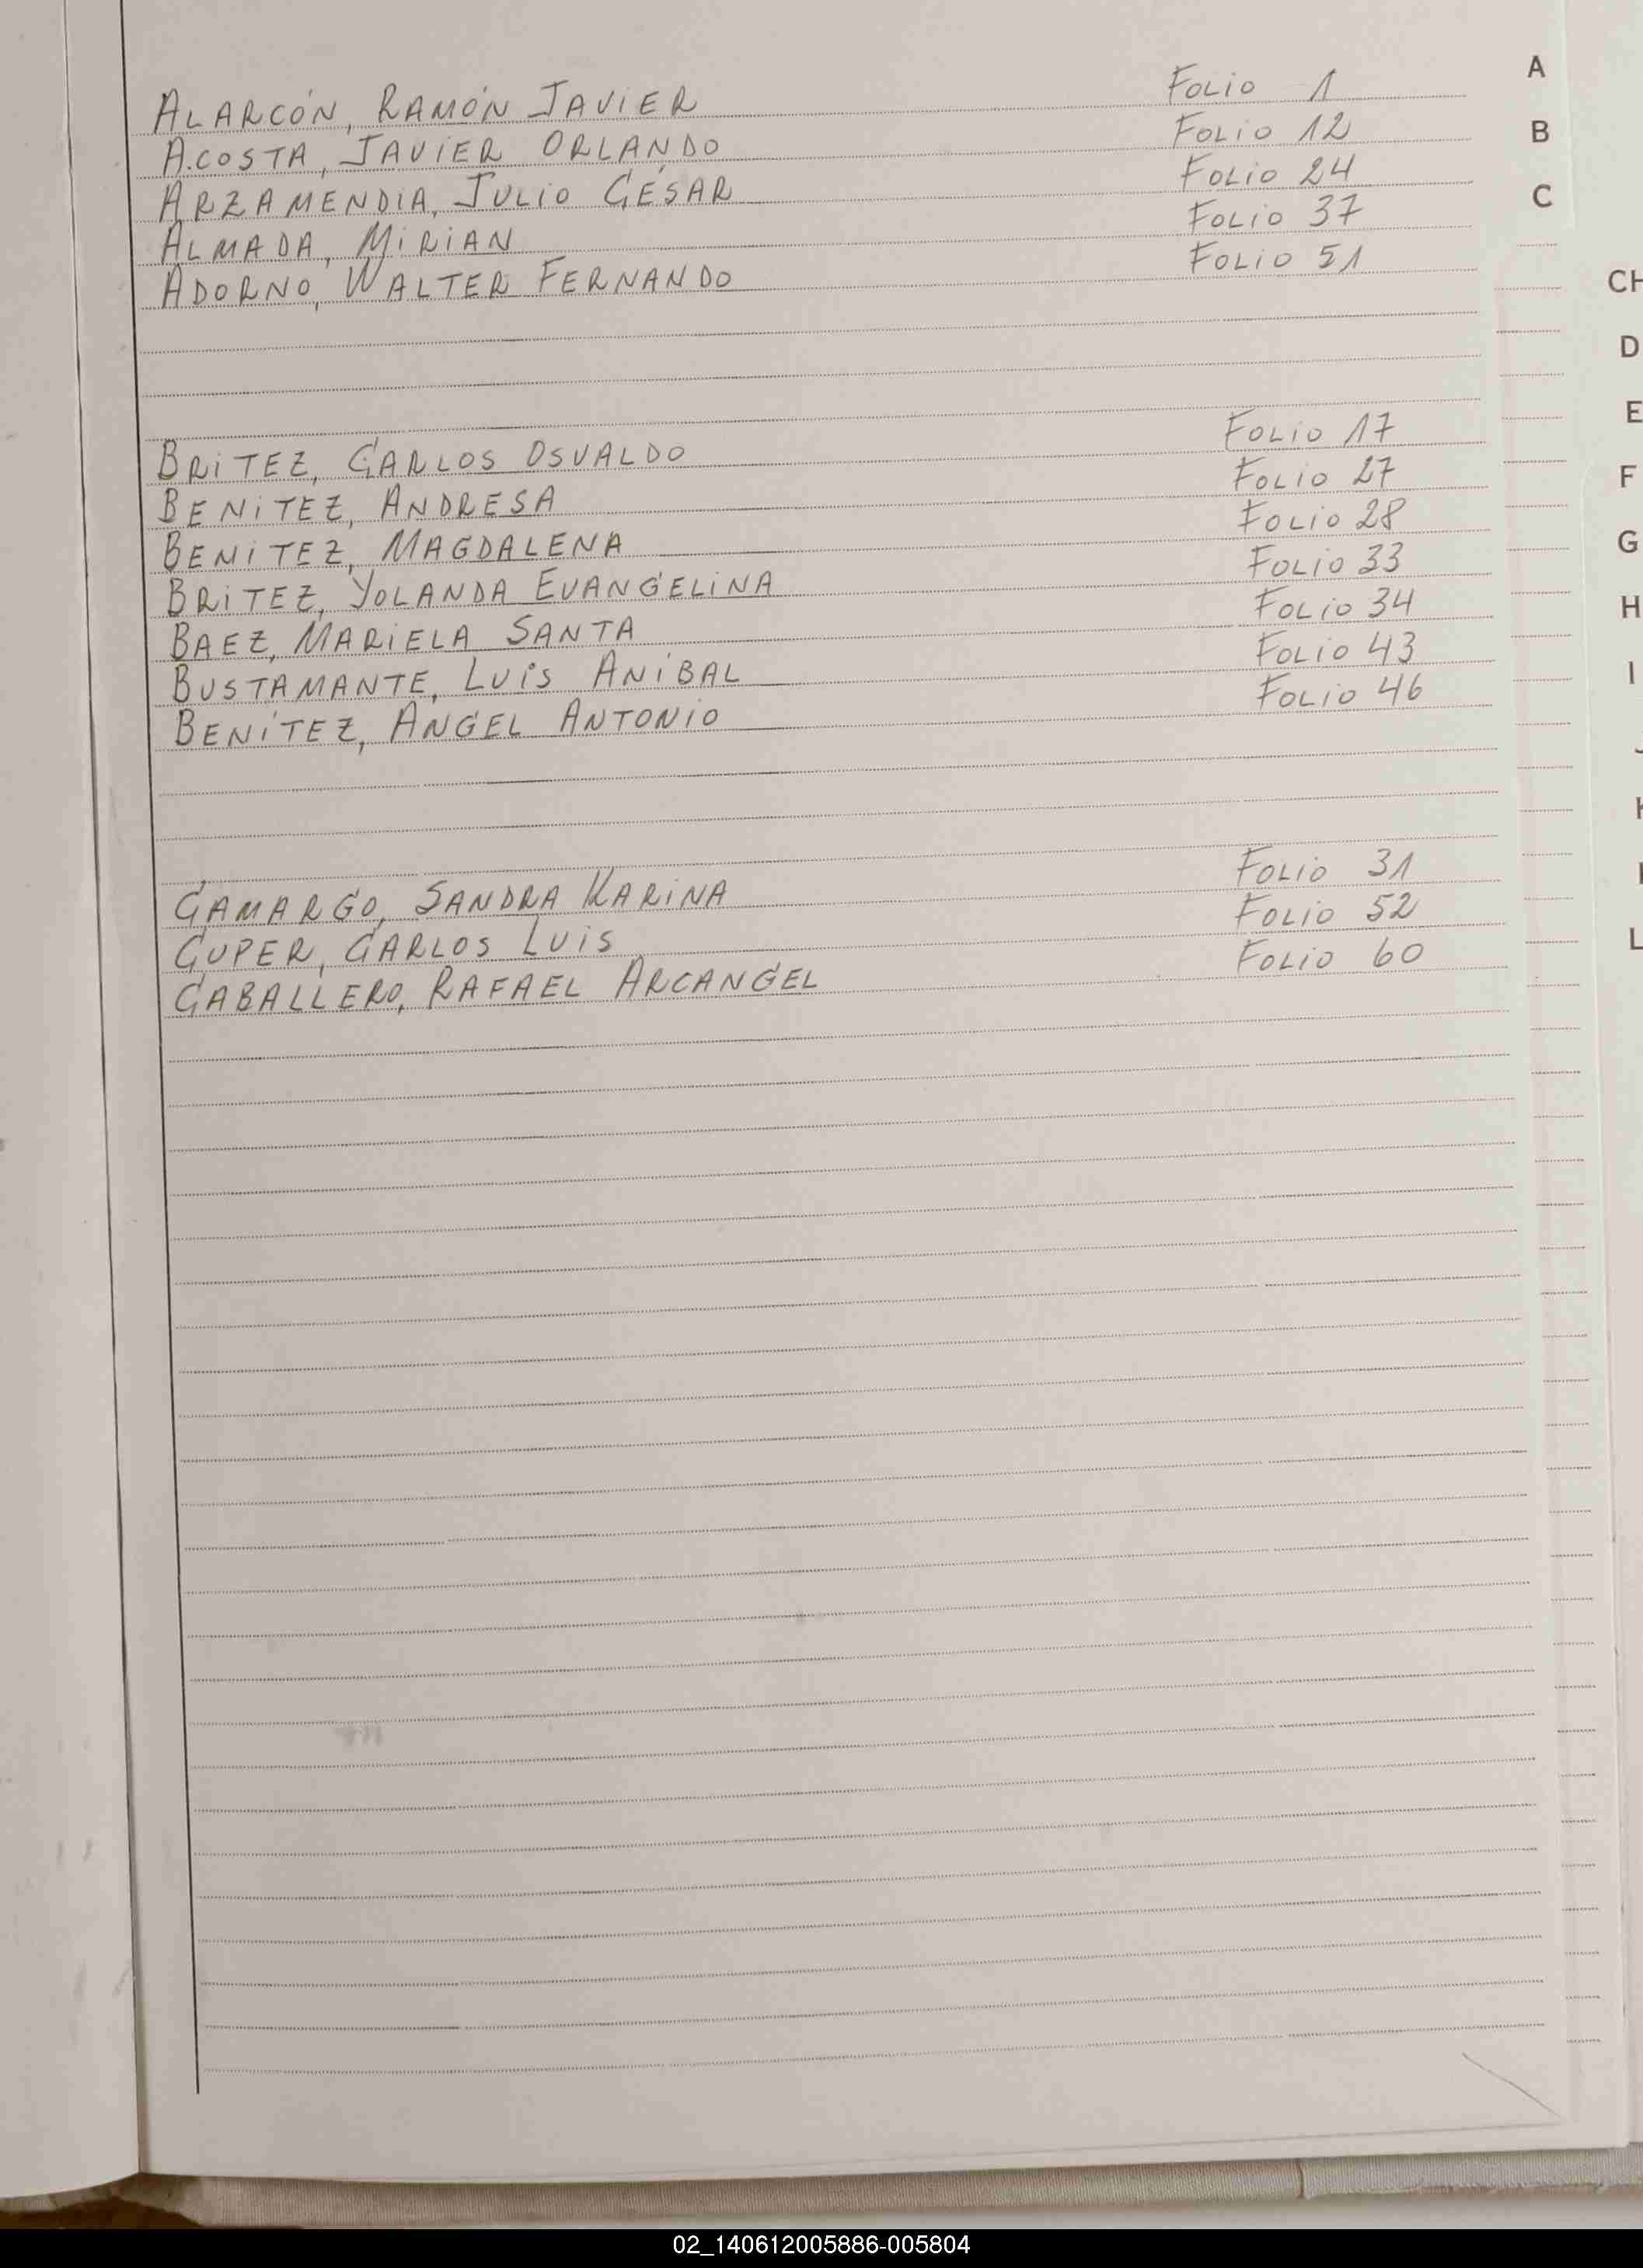 ALARCÓN, RAMÓN JAVIER Folio 1
ACOSTA, JAVIER ORLANDO Folio 12
ARZAMENDIA, JULIO CÉSAR Folio 24
ALMADA, MIRIAN Folio 37
ADORNO, WALTER FERNANDO Folio 51
BRITEZ, CARLOS OSVALDO Folio 17
BENITEZ, ANDRESA Folio 27
BENITEZ, MAGDALENA Folio 28
BRITEZ, YOLANDA EVANGELINA Folio 33
BAEZ, MARIELA SANTA Folio 34
BUSTAMANTE, LUIS ANIBAL Folio 43
BENÍTEZ, ANGEL ANTONIO Folio 46
CAMARGO, SANDRA KARINA Folio 31
CUPER, CARLOS LUIS Folio 52
CABALLERO, RAFAEL ARCANGEL Folio 60
A
B
C
CH
D
E
F
G
H
I
L
02_140612005886-005804